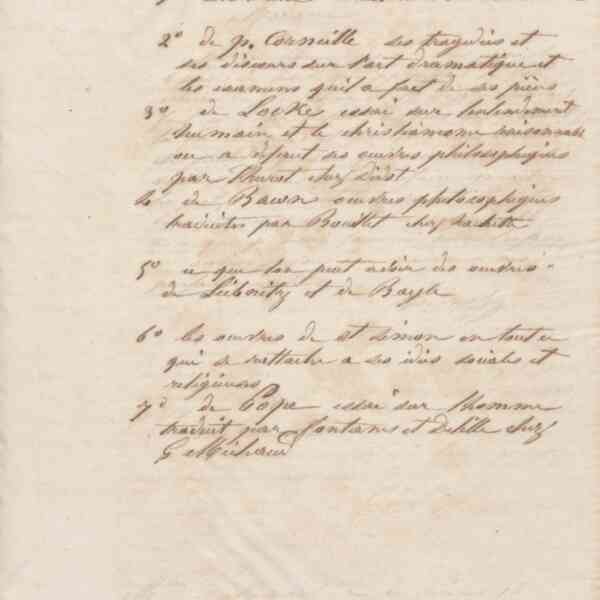 2º de p. Corneille ses tragedies et
ses discours sur l'art dramatique et
les examens qu'il a fait de ses pièces
3º de Locke essai sur l'entendement
humain et le christianisme raisonnable
ou a defaut ses œuvres philosophiques
par Thurot chez Didot
4 de Bacon œuvres philosophiques
traduites par Bouillet chez hachette
5º ce que l'on peut avoir des œuvres
de Leibnitz et de Bayle
6º les œuvres de st simon en tout ce
qui se rattache a ses idées sociales et
religieuses
7º de Pope essai sur l'homme
traduit par fontanes et Delille chez
G Michaud